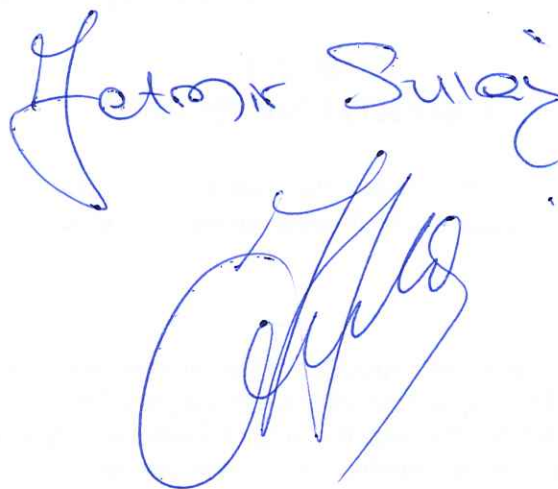 Jetmir Sulaj